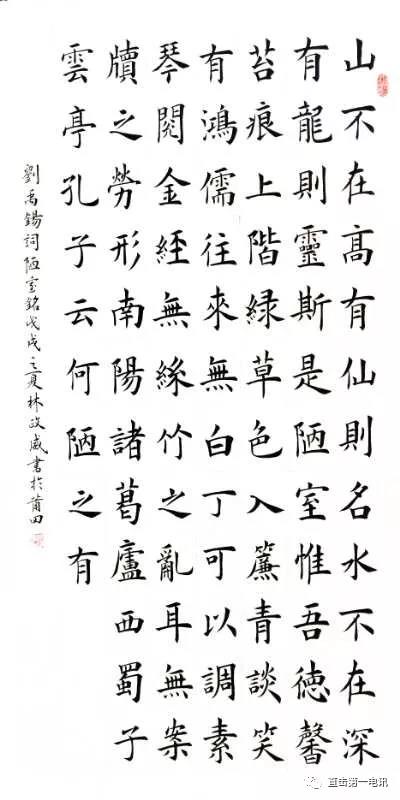 山不在高有仙則名水不在深
有龍則靈斯是陋室惟吾徳馨
苔痕上階緑草色入簾青談笑
有鴻儒往來無白丁可以調素
琴閱金經無絲竹之亂耳無案
牘之勞形南陽諸葛廬西蜀子
雲亭孔子云何陋之有
劉禹錫詞陋室銘戊戌之夏林政威書於莆田
直击第一电讯